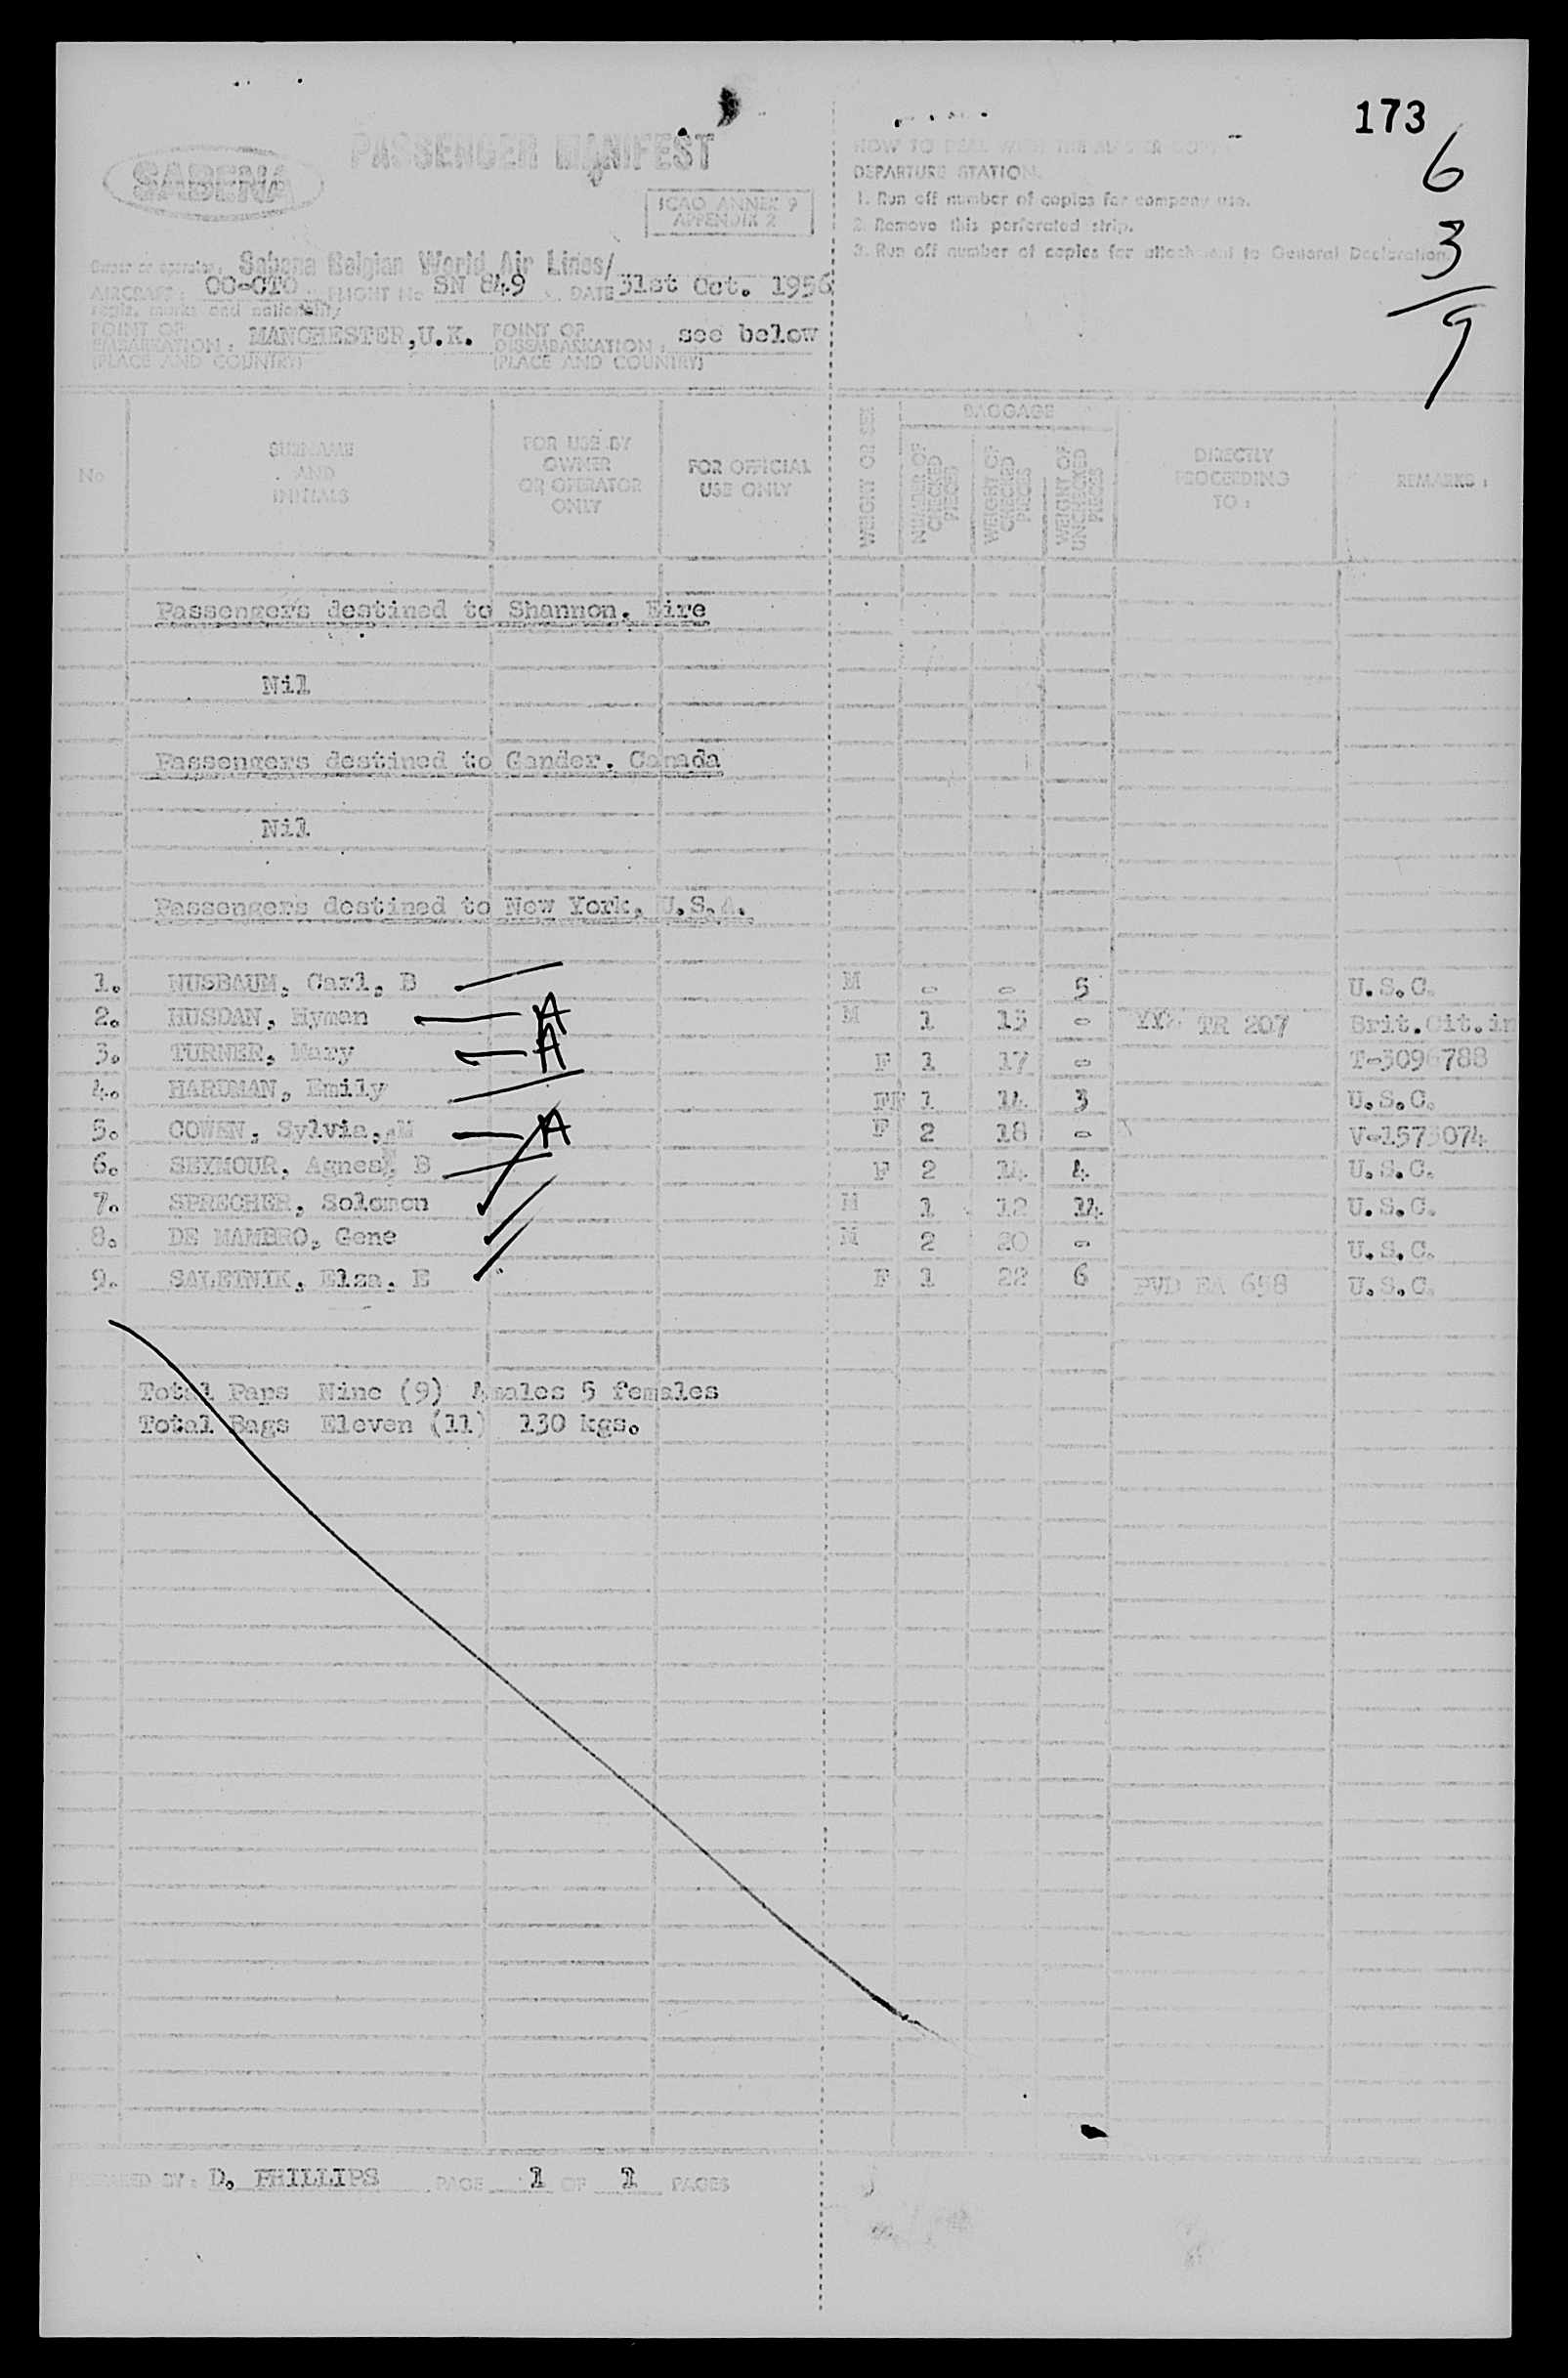 173
6
3
9
SABENA
PASSENGER MANIFEST
ICAO ANNEX 9
APPENDIX 2
HOW TO DEAL WITH THE MASTER COPY
DEPARTURE STATION.
1. Run off number of copies for company use.
2. Remove this perforated strip.
3. Run off number of copies for attachment to General Declaration.
Owner or operator. Sabena Belgian World Air Lines/
AIRCRAFT: OO-CTO FLIGHT No SN 849 DATE 31st Oct. 1956
regis. marks and nationality
POINT OF EMBARKATION: MANCHESTER, U.K. POINT OF DISEMBARKATION: see below
(PLACE AND COUNTRY) (PLACE AND COUNTRY)
No SURNAME AND INITIALS FOR USE BY OWNER OR OPERATOR ONLY FOR OFFICIAL USE ONLY WEIGHT OR SEX BAGGAGE NUMBER OF CHECKED PIECES WEIGHT OF CHECKED PIECES WEIGHT OF UNCHECKED PIECES DIRECTLY PROCEEDING TO: REMARKS:
Passengers destined to Shannon, Eire
Nil
Passengers destined to Gander, Canada
Nil
Passengers destined to New York, U.S.A.
1. NUSBAUM, Carl, B M - - 5 U.S.C.
2. HUSDAN, Hyman A M 1 13 - TR 207 Brit.Cit.in
3. TURNER, Mary A F 1 17 -
4. HARDMAN, Emily F 1 14 3 U.S.C.
5. COWEN, Sylvia, M A F 2 18 -
6. SEYMOUR, Agnes, B F 2 14 4 U.S.C.
7. SPRECHER, Solomon M 1 12 14 U.S.C.
8. DE MAMBRO, Gene M 2 20 - U.S.C.
9. SALETNIK, Elsa, E F 1 22 6 PVD EA 658 U.S.C.
Total Paps Nine (9) 4males 5 females
Total Bags Eleven (11) 130 kgs.
PREPARED BY: D. PHILLIPS PAGE 1 OF 1 PAGES